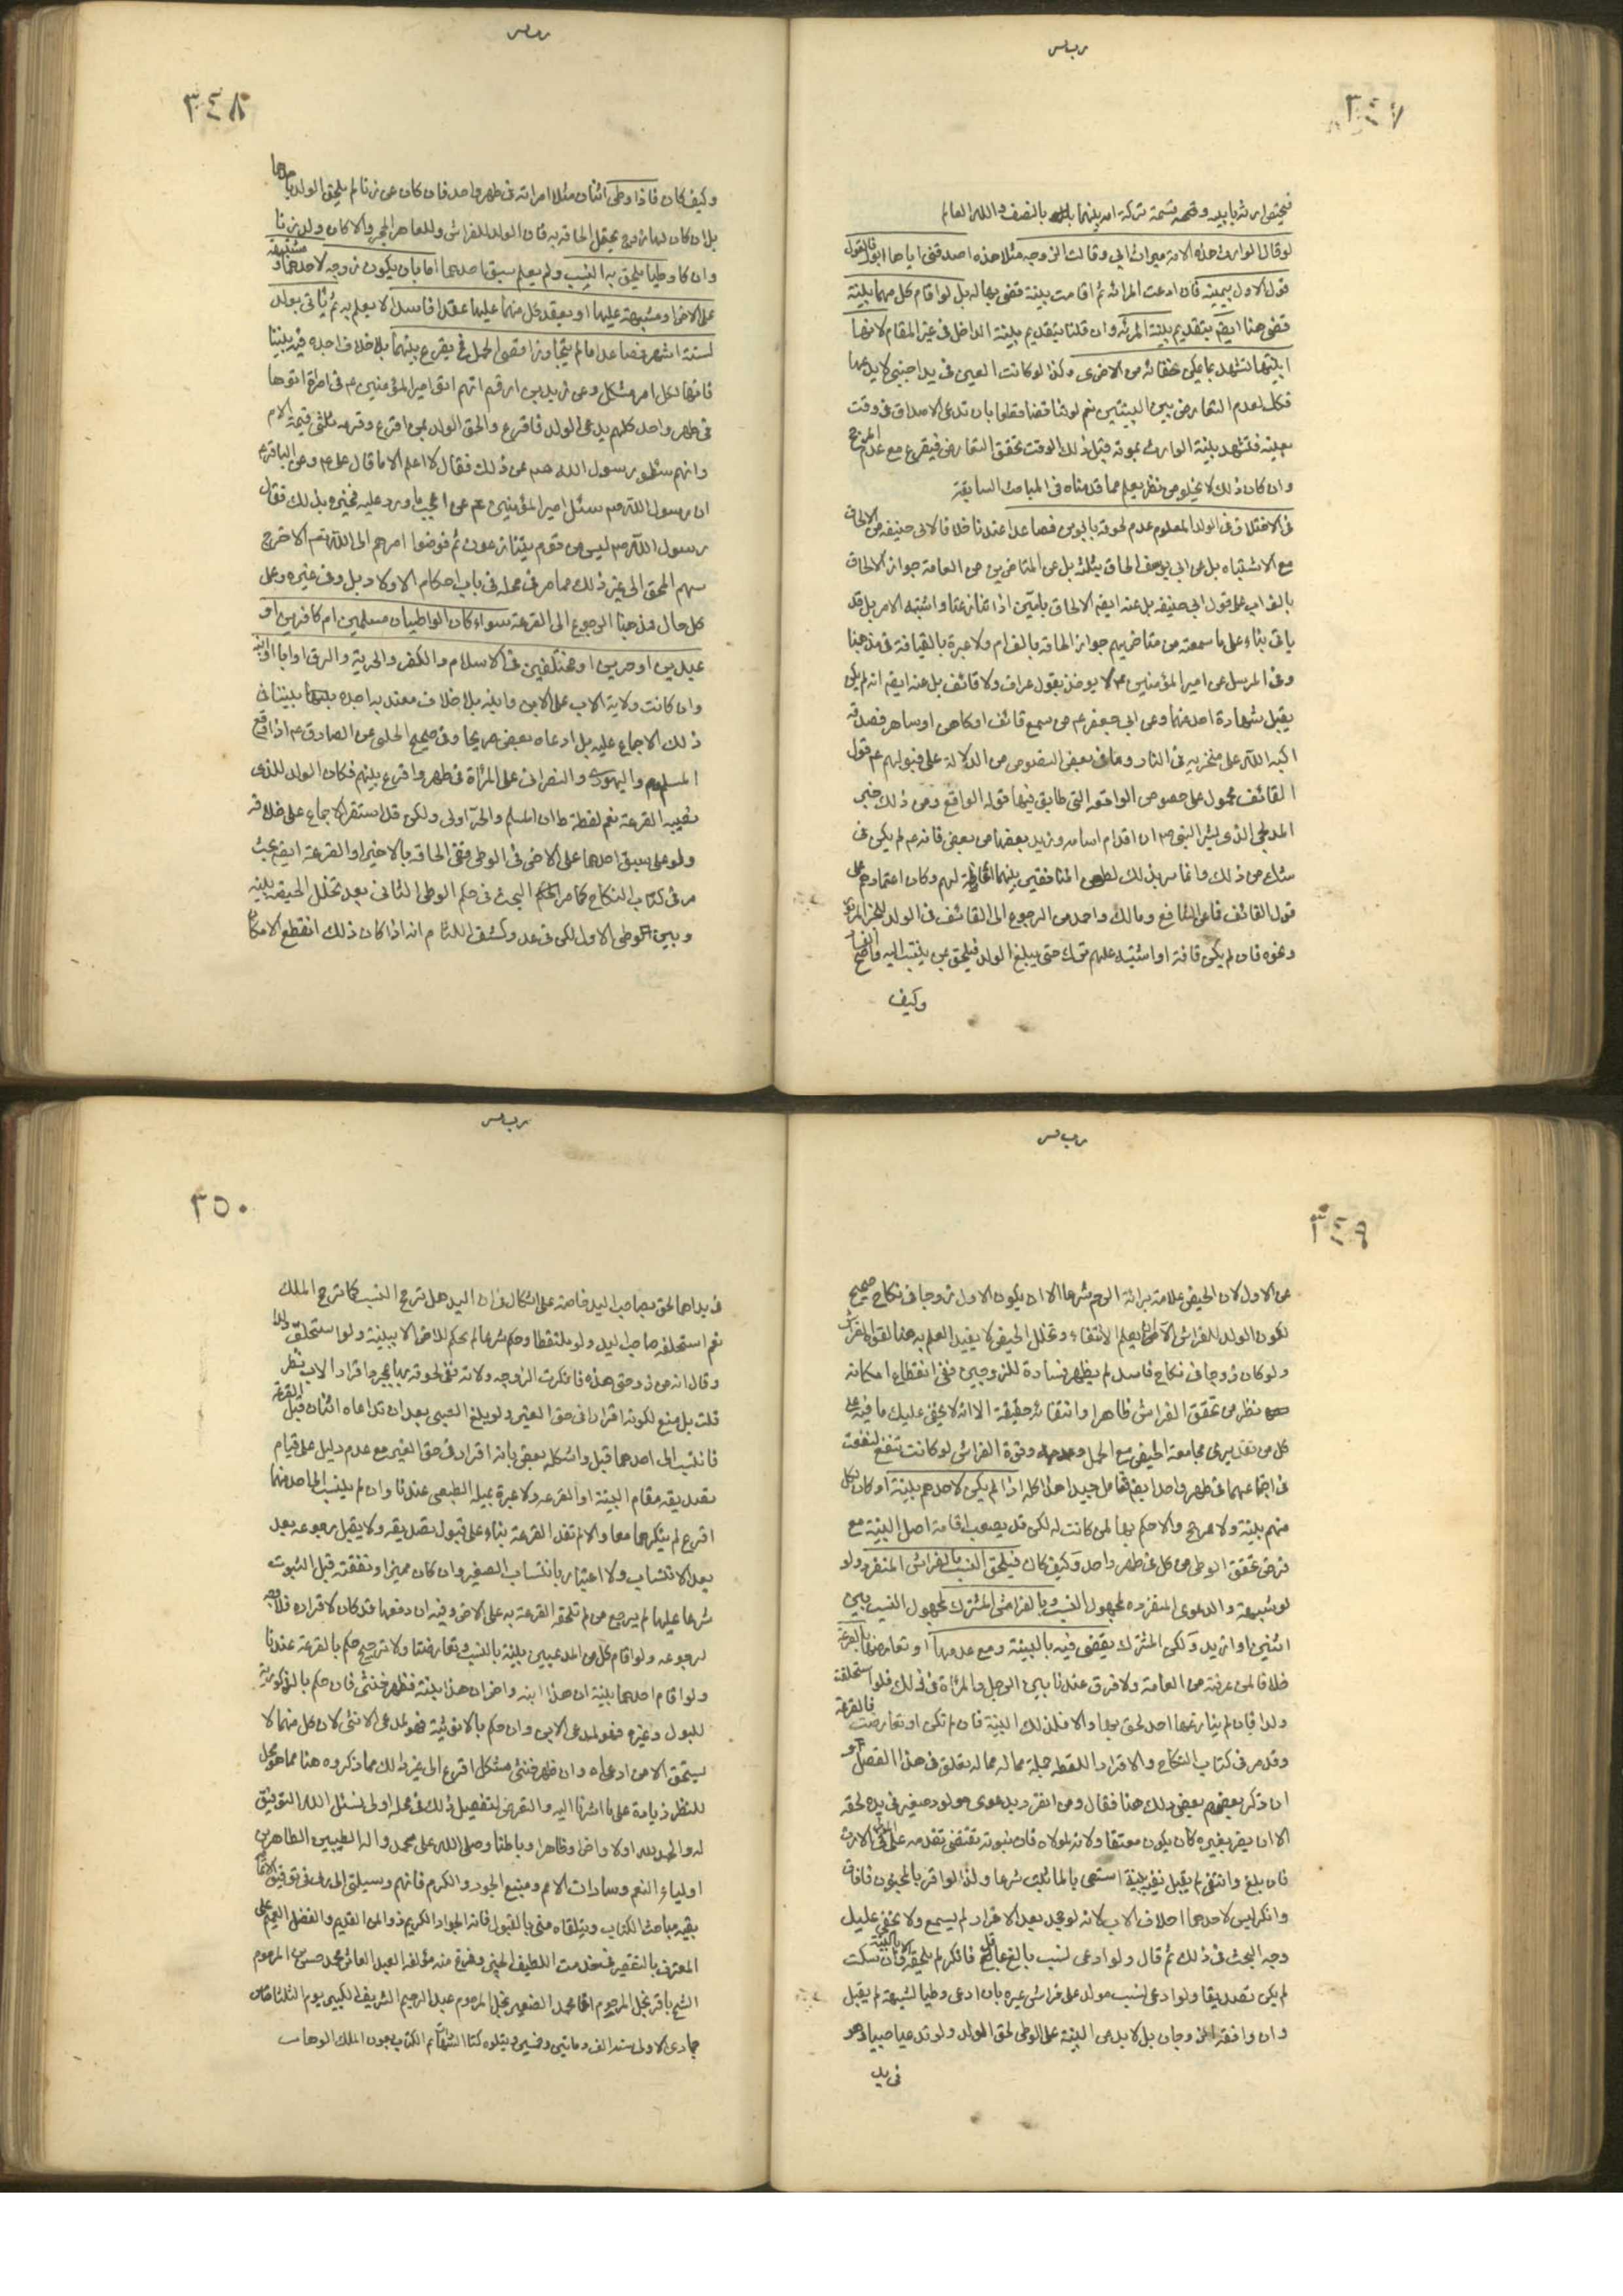 ٣٤٧
فيختص ارثه بابيه وقسمة تركة امه بينهما بالنصف والله العالم
لو قال الوارث هذه الامة ميراث ابي وقالت الزوجة مثلا هذه اصدقني اياها ابوك فالقول
قول الاول بيمينه فان ادعت المرأة ثم اقامت بينة قضى بها له بل لو اقام كل منهما بينة
قضى هنا ايضا بتقديم بينة المرأة وان قلنا بتقديم بينة الداخل في غير المقام لانها
بينتها تشهد بما يمكن خفائه من الاخرى وكذا لو كانت العين في يد اجنبي لا يدعيها
فكل لعدم التعارض بين البينتين نعم لو
بعينه فتشهد بينة الوارث بموته قبل ذلك الوقت تحقق التعارض فيقرع مع عدم المرجح
وان كان ذلك لا يخلو من نظر يعلم مما قدمناه في المباحث السابقة
في الاختلاف في الولد المعلوم عدم لحوقه بابوين فصاعدا عندنا خلافا لابي حنيفة من الالحاق
مع الاشتباه بل عن ابي يوسف الحاق بثلثة بل عن المتأخرين من العامة جواز الالحاق
بالف اب على قول ابي حنيفة بل عنه ايضا الالحاق بامين اذا تنازعتا واشتبه الامر بل قد
يأتي بناء على ما سمعته من متأخريهم جواز الحاقه بالف ام ولا عبرة بالقيافة في مذهبنا
وفي المرسل عن امير المؤمنين ع لا يؤخذ بقول عراف ولا قائف بل عنه ايضا انه لم يكن
يقبل شهادة احد منهما وعن ابي جعفر ع من سمع قائف او كاهن او ساحر فصدقه
اكبه الله على منخريه في النار وما في بعض النصوص من الدلالة على قبولهم ع قول
القائف محمول على خصوص الواقعة التي طابق فيها قوله الواقع ومن ذلك خبر
المدلجي الذي بشر النبي ص ان اقدام اسامة وزيد بعضها من بعض فانه ع لم يكن في
شك من ذلك وانما سر بذلك لطعن المنافقين بينهما اغاظة لهم وكان اعتمادهم على
قول القائف فما عن الشافعي ومالك واحمد من الرجوع الى القائف في الولد للخبر المزبور
ونحوه فان لم يكن قافة او اشتبه عليهم ترك حتى يبلغ الولد فيلحق بمن ينتسب اليه واضح الفساد
وكيف
٣٤٨
وكيف كان فاذا وطى اثنان مثلا امرأة في طهر واحد فان كان عن زنا لم يلحق الولد باحدهما
بل ان كان لها زوج يحتمل الحاقه به فان الولد للفراش وللعاهر الحجر والا كان ولد زنا
وان كان وطيا يلحق به النسب ولم يعلم سبق احدهما اما بان يكون زوجة لاحدهما ومشتبهة
على الاخر او مشتبهة عليهما او يعقد كل منهما عليها عقدا فاسدا لا يعلم به ثم تأتي بولد
لستة اشهر فصاعدا ما لم يتجاوز اقصى الحمل فح يقرع بينهما بلا خلاف اجده فيه بيننا
فانها لكل امر مشكل وعن زيد بن ارقم انهم اتى امير المؤمنين ع في امرأة اتوها
في طهر واحد كلهم يدعي الولد فاقرع والحق الولد بمن اقرع وغرمه ثلثي قيمة الام
وانهم سئلوا رسول الله ص عن ذلك فقال لا اعلم الا ما قال علي ع وعن الباقر ع
ان رسول الله ص سئل امير المؤمنين ع عن اعجب ما ورد عليه فخبره بذلك فقال
رسول الله ص ليس من قوم يتنازعون ثم فوضوا امرهم الى الله تعالى الا خرج
سهم المحق الى غير ذلك مما مر في محله في باب احكام الاولاد بل وفي غيره وعلى
كل حال فذهبنا الرجوع الى القرعة سواء كان الواطيان مسلمين ام كافرين او
عبدين او حرين او مختلفين في الاسلام والكفر والحرية والرق او ابا وابنه
وان كانت ولاية الاب على الابن وابنه بلا خلاف معتد به اجده بيننا في
ذلك الاجماع عليه بل ادعاه بعض صريحا وفي صحيح الحلبي عن الصادق ع اذا وقع
المسلم واليهودي والنصراني على المرأة في طهر واقرع بينهم فكان الولد للذي
تصيبه القرعة نعم لفظة ط ان المسلم والحر اولى ولكن قد استقر الاجماع على خلافه
ولو علم سبق احدهما على الاخر في الوطي ففي الحاقه بالاخير او القرعة ايضا بحث
مر في كتاب النكاح كما مر البحث في حكم الوطي الثاني بعد تخلل الحيضة بينه
وبين الوطى الاول لكن في عد وكشف اللثام انه اذا كان ذلك انقطع الامكان
٣٤٩
عن الاول لان الحيض علامة براءة الرحم شرعا الا ان يكون الاول زوجا في نكاح صحيح
لكون الولد للفراش الا ان يعلم الانتفاء وتخلل الحيض لا يفيد العلم به هنا لقوة الفراش
ولو كان زوجا في نكاح فاسد لم يظهر فساده للزوجين ففي انقطاع امكانه
نظر من تحقق الفراش ظاهرا وانتفائه حقيقة الا انه لا يخفى عليك ما فيه على
كل من تقديري مجامعة الحيض مع الحمل وعدمه وقوة الفراش لو كانت تنفع لنفعت
في اجتماعهما في طهر واحد ايضا فتأمل جيدا هذا كله اذا لم يكن لاحدهم بينة او كان لكل
منهم بينة ولا مرجح والا حكم بها لمن كانت له لكن قد يصعب اقامة اصل البينة مع
فرض تحقق الوطى من كل في طهر واحد وكيف كان فيلحق النسب بالفراش المنفرد ولو
لو شبهة والدعوى المنفردة لمجهول النسب وبالفراش المشترك لمجهول النسب بين
اثنين او ازيد ولكن المشترك يقضى فيه بالبينة ومع عدمها او تعارضها بالقرعة
خلافا لمن عرفته من العامة ولا فرق عندنا بين الرجل والمرأة في ذلك فلو استلحقت
ولدا فان لم ينازعها احد لحق بها والا فلذلك البينة فان لم تكن او تعارضت فالقرعة
وقد مر في كتاب النكاح والاقرار واللقطة جملة مما له تعلق في هذا الفصل
ان ذكر بعضهم بعض ذلك هنا فقال ومن انفرد بدعوى مولود صغير في يده لحقه
الا ان يضر بغيره كان يكون معتقا ولائه لمولاه فان ثبوته تقتضي تقدمه على المولى في الارث
فان بلغ وانتفى لم يقبل نفيه استصحابا لما ثبت شرعا ولذا لو اقر بالمجنون فافاق
وانكر ليس لاحدهما احلاف الاب لانه لو جحد بعد الاقرار لم يسمع ولا يخفى عليك
وجه البحث في ذلك ثم قال ولو ادعى نسب بالغ عاقل فانكر لم يلحقه الا بالبينة فان سكت
لم يكن تصديقا ولو ادعى نسب مولد على فراش غيره بان ادعى وطيا لشبهة لم يقبل
وان وافقه الزوجان بل لا بد من البينة على الوطى لحق الولد ولو تداعيا صبيا وهو
في يد
٣٥٠
في يد احدهما لحق بصاحب اليد خاصة على اشكال في ان اليد هل ترجح النسب كما ترجح الملك
نعم استلحقه صاحب اليد ولو ملتقطا وحكم شرعا لم يحكم للاخر الا ببينة ولو استلحق ولدا
وقال انه من زوجتي هذه فانكرت الزوجة ولادته ففي لحوقه بها بمجرد اقرار الاب نظر
قلت بل منع لكونه اقرارا في حق الغير ولو بلغ الصبي بعد ان تداعاه اثنان قبل القرعة
فانتسب الى احدهما قبل واشكله بعض بانه اقرار في حق الغير مع عدم دليل على قيام
تصديقه مقام البينة او القرعة ولا عبرة بميله الطبيعي عندنا وان لم ينتسب الى احد منهما
اقرع لم ينكرهما معا والا لم تفد القرعة بناء على قبول تصديقه ولا يقبل رجوعه بعد
بعد الانتساب ولا اعتبار بانتساب الصغير وان كان مميزا ونفقته قبل الثبوت
شرعا عليهما ثم يرجع من لم تلحقه القرعة به على الاخر وفيه ان دفعها قد كان لاقراره فلا وجه
لرجوعه ولو اقام كل من المدعيين بينة بالنسب وتعارضتا ولا ترجيح حكم بالقرعة عندنا
ولو اقام احدهما بينة ان هذا ابنه واخر ان هذا بنته فظهر خنثى فان حكم بالذكورية
للبول وغيره فهو لمدعي الابن وان حكم بالانوثية فهو لمدعي الانثى لان كل منهما لا
يستحق الا من ادعاه وان ظهر خنثى مشكل اقرع الى غير ذلك مما ذكروه هنا مما هو محل
للنظر زيادة على ما اشرنا اليه والتعرض لتفصيل ذلك في محله اولى نسئل الله التوفيق
له والحمد لله اولا واخرا وظاهرا وباطنا وصلى الله على محمد واله الطيبين الطاهرين
اولياء النعم وسادات الامم ومنبع الجود والكرم فانهم وسيلتي الى ربي في توفيق لاتمام
بقية مباحث الكتاب ويتلقاه مني بالقبول فانه الجواد الكريم ذو المن القديم والفضل العميم على
المعترف بالتقصير في خدمت اللطيف الخبير وفرغ منه مؤلفه العبد العاثر محمد حسن بن المرحوم
الشيخ باقر نجل المرحوم اغا محمد الصغير نجل المرحوم عبد الرحيم الشريف الكبير يوم الثلثا
جمادى الاولى سنة الف ومائتين وخمسين ويتلوه كتاب الشهادات تم الكتاب بعون الملك الوهاب